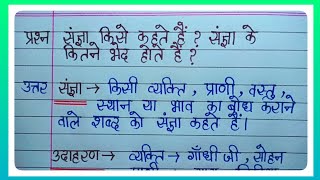 प्रश्न संज्ञा किसे कहते हैं ? संज्ञा के
कितने भेद होते हैं ?
उत्तर संज्ञा → किसी व्यक्ति , प्राणी , वस्तु ,
स्थान या भाव का बोध कराने
वाले शब्द को संज्ञा कहते हैं।
उदाहरण → व्यक्ति → गाँधी जी , सोहन